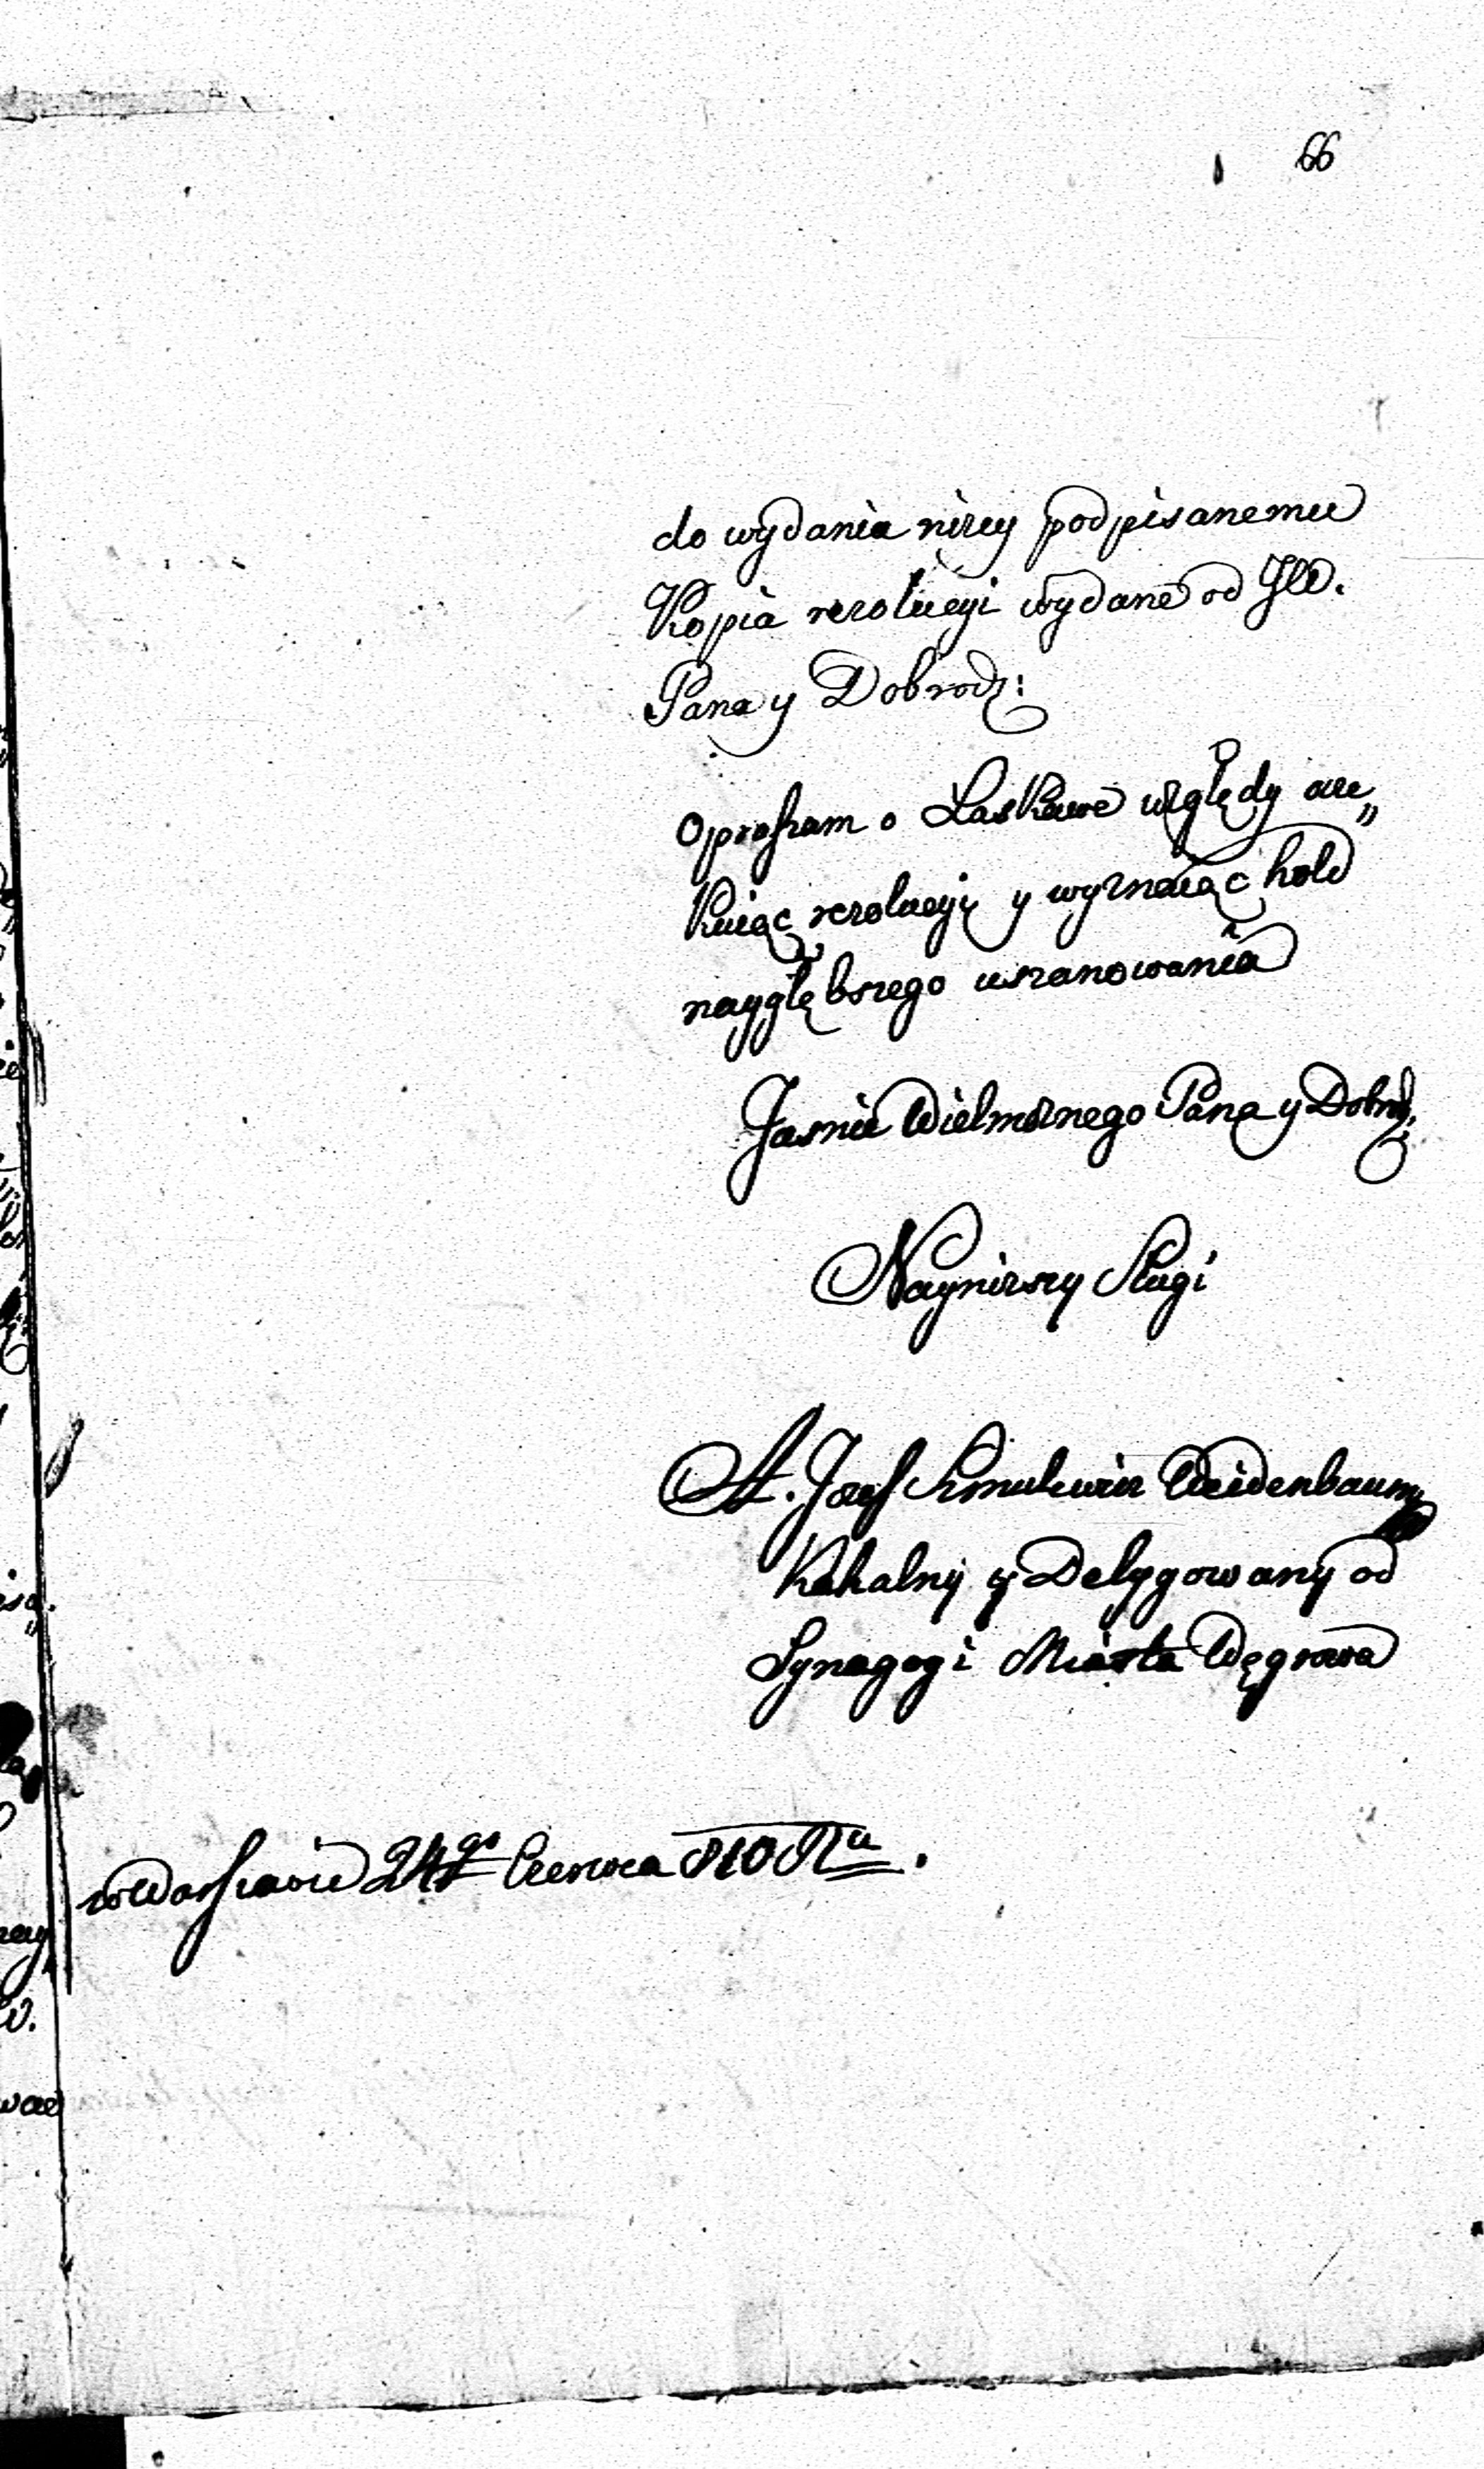 66
do wydania nizey podpisanemu
Kopia rezolucyi wydane od JW.
Pana y Dobrodz:
oproszam o Łaskawe względy
rezolucyi y wyznaiąc hold
nayglębszego uszanowania
Jasnie Wielmożnego Pana y Dobrodz:
Nayniższy Sługi
Josef Szmulewicz Weidenbaum
Kahalny y Delygowany od
Synagogi Miasta Węgrowa
w Warszawie 24go Czerwca 810 Ru.